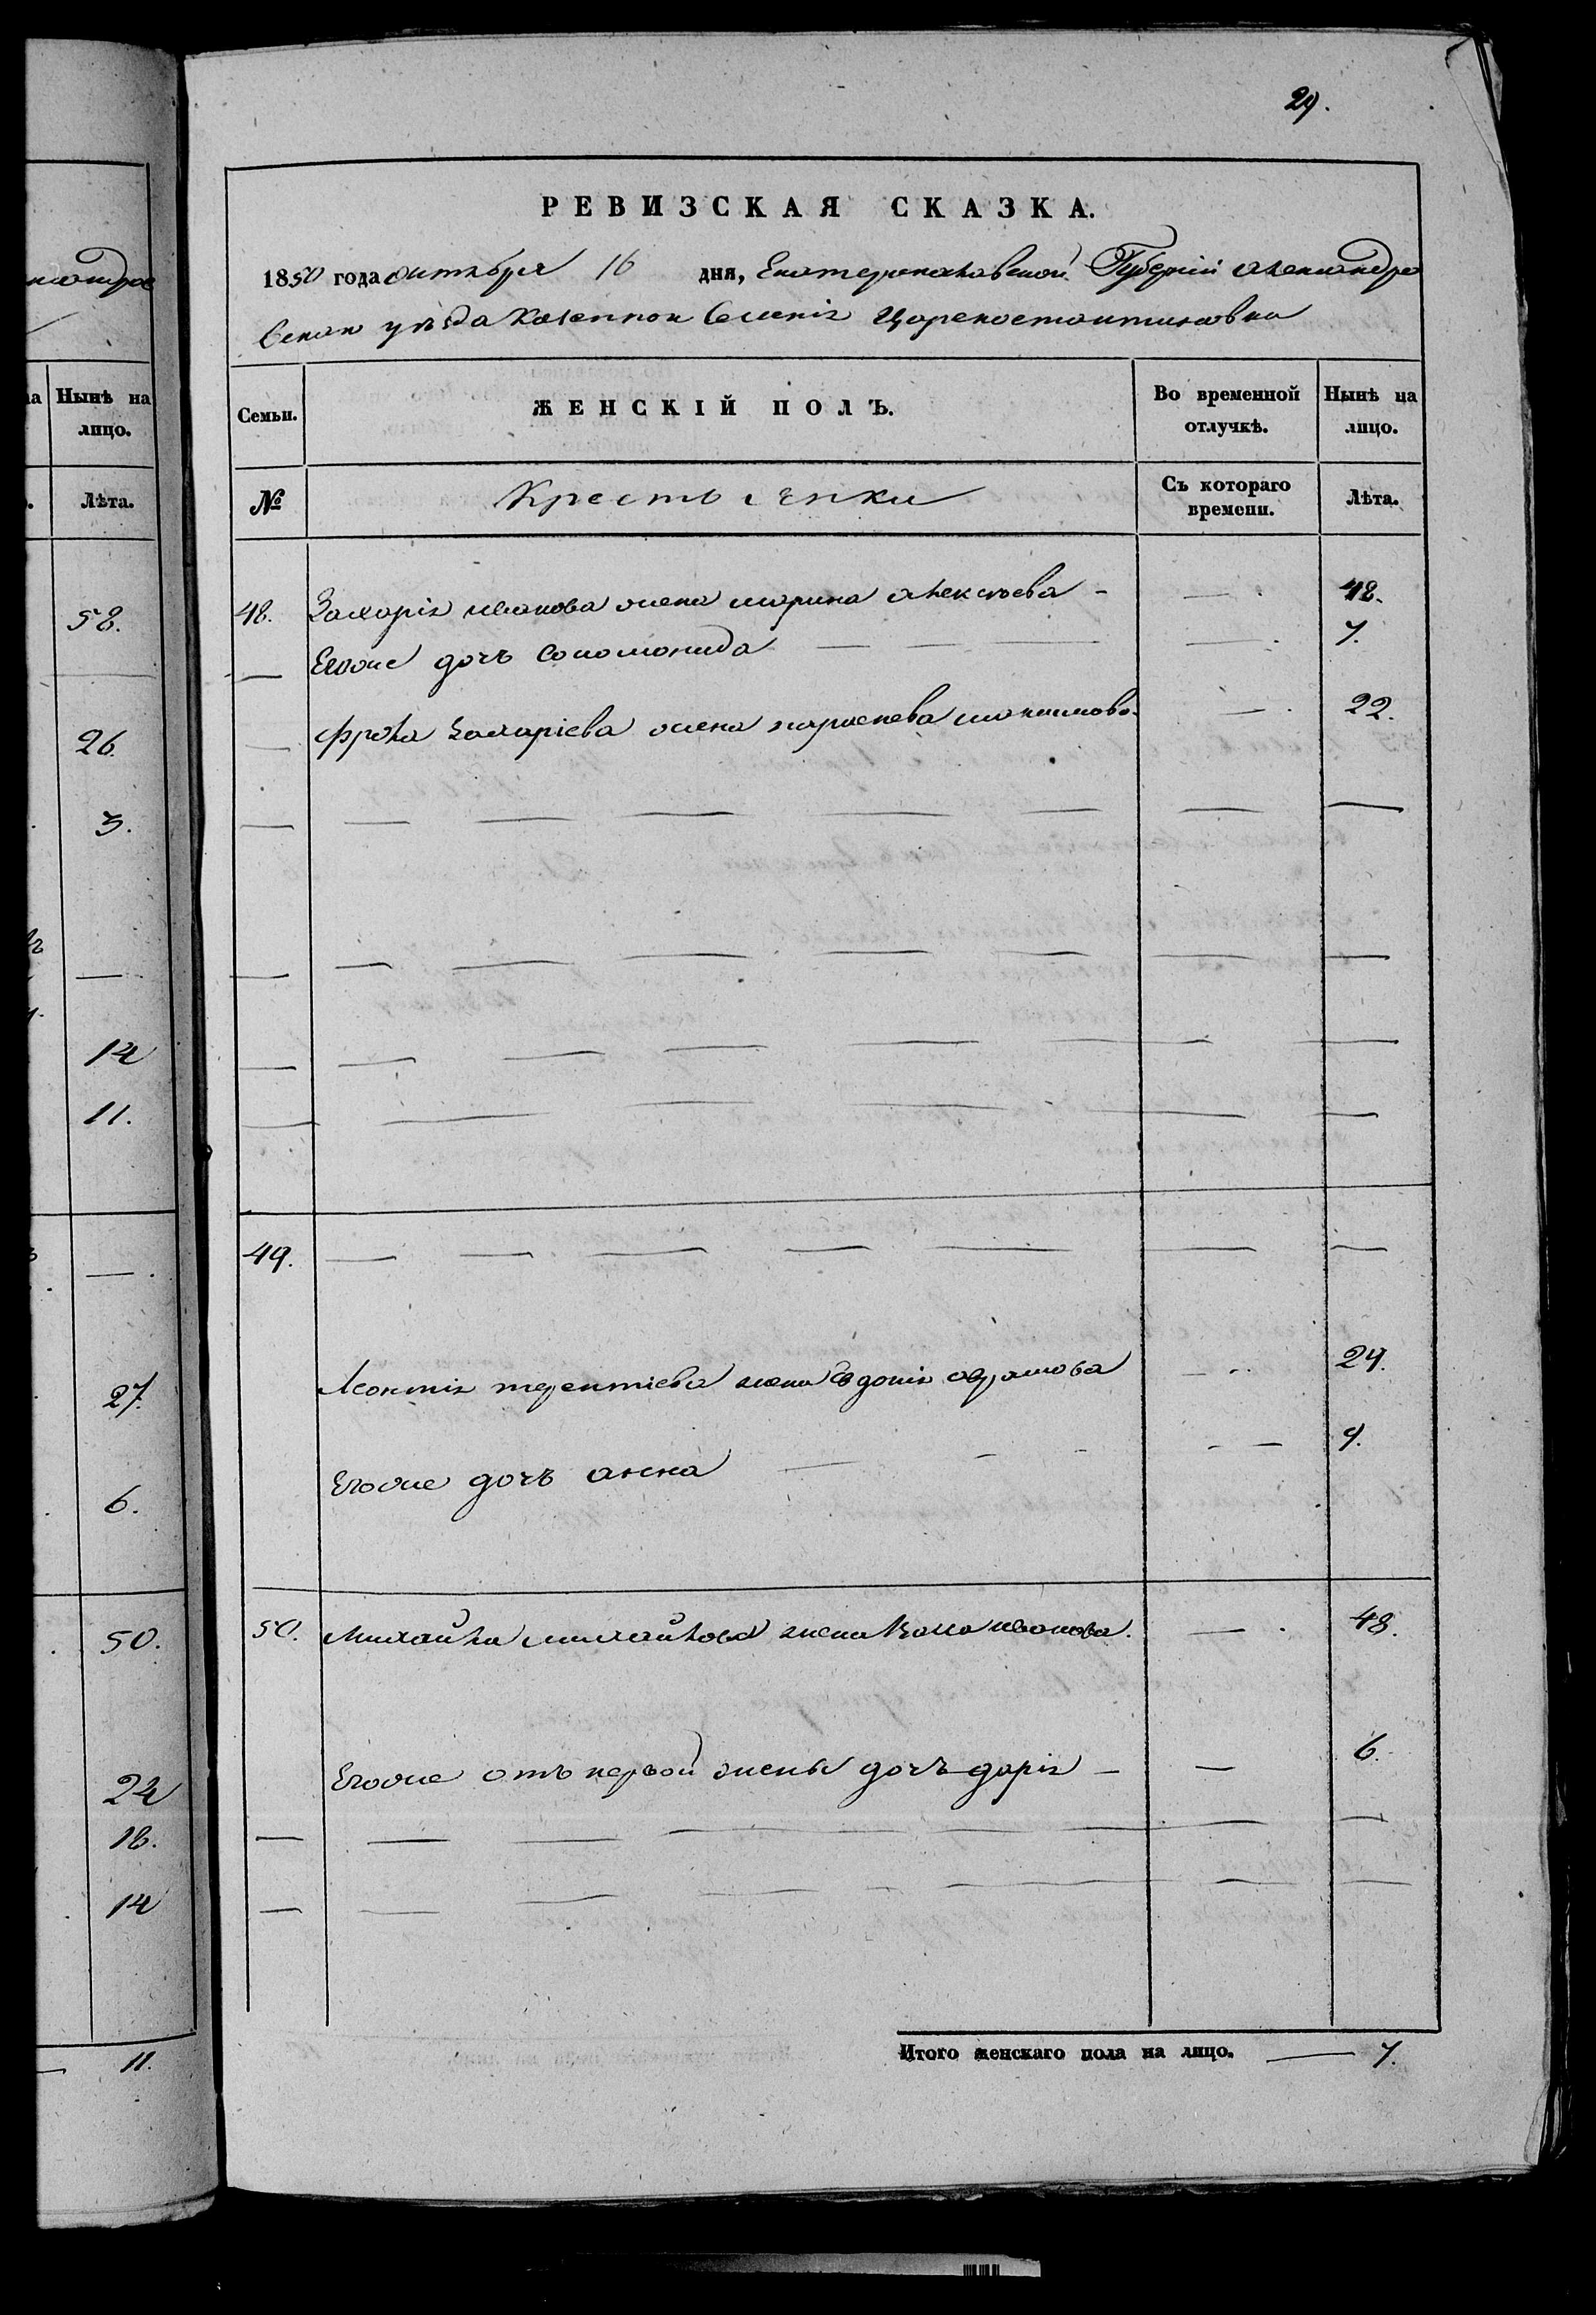 29.
РЕВИЗСКАЯ СКАЗКА.
1850 года октября 16 дня, Екатеринославской Губерніи александро
вскаго уѣзда казенной Селенія Цареконстантиновки
Семьи. ЖЕНСКІЙ ПОЛЪ. Во временной отлучкѣ. Нынѣ на лицо.
№ Крестьянки Съ котораго времени. Лѣта.
48. Захарія иванова жена марина алексѣева - — 48.
— Егоже дочь соломонида — — — — 7.
— фрола захаріева жена параскева максимова — 22.
49. — — — — — — —
Леонтія терентіева жена Евдокія абрамова — 29.
Егоже дочь анна — — — 9.
50. михайла михайлова жена иванова. — 48.
Егоже отъ первой жены дочь дарія — — 6.
Итого женскаго пола на лицо. — 7.
ксандров
Нынѣ на
лицо.
Лѣта.
58.
26.
3.
14
11.
27.
6.
50.
24
18.
14
11.